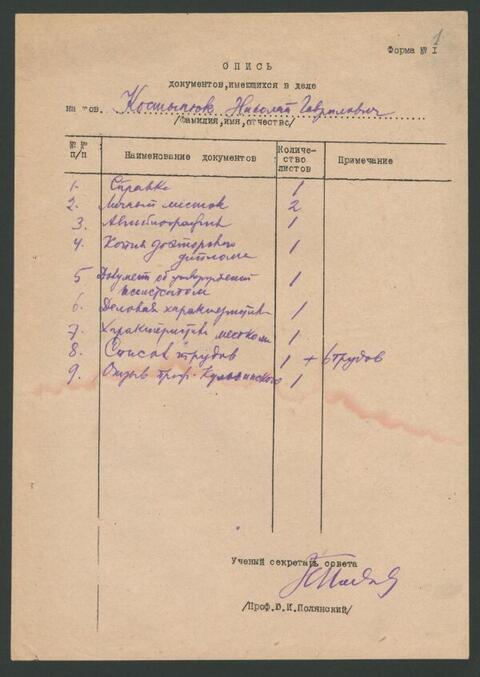 1
Форма № I
ОПИСЬ
документов,имеющихся в деле
на тов. Костынюк Николай Гаврилович
/Фамилия,имя,отчество/
№ № п/п Наименование документов Количество листов Примечание
1. Справка 1
2. Личный листок 2
3. Автобиография 1
4. Копия докторского
диплома 1
5 Документ об утверждении
ассистентом 1
6. Деловая характеристика 1
7. Характеристика месткома 1
8. Список трудов 1 + 6 трудов
9. Отзыв проф. 1
Ученый секретарь совета
/Проф.Ю.И.Полянский/